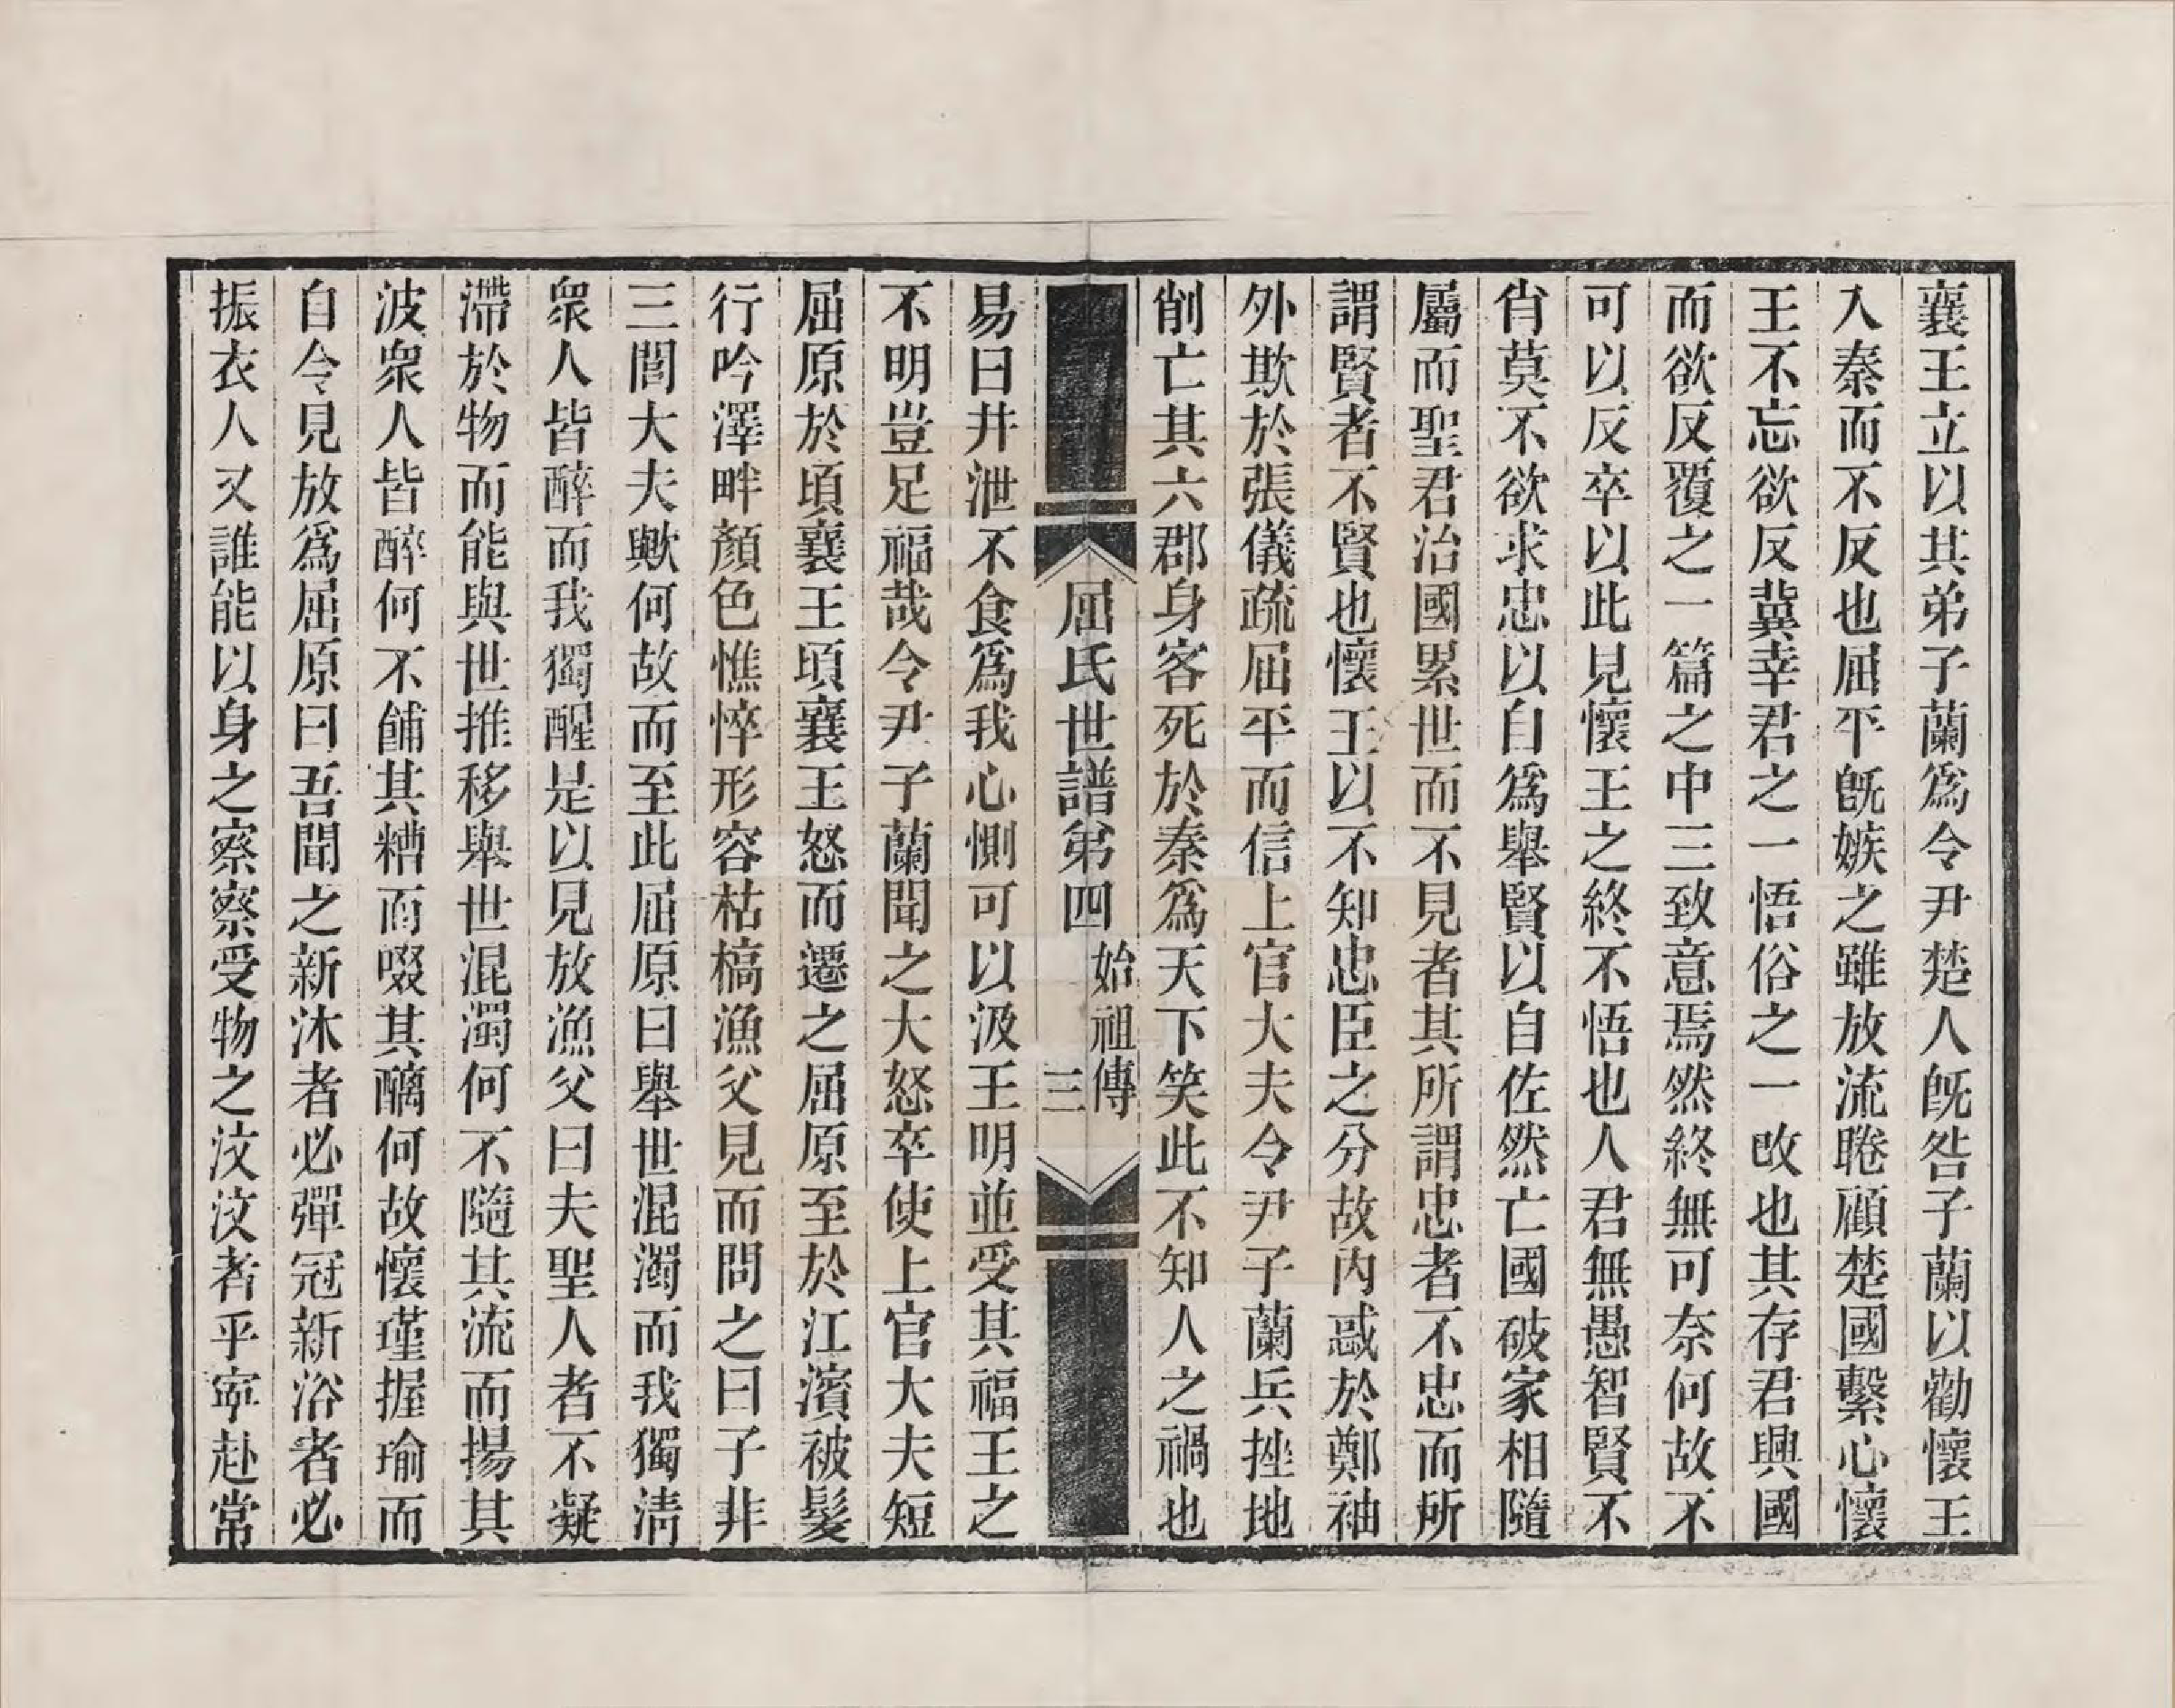 襄王立以其弟子蘭爲令尹楚人旣咎子蘭以勸懷王
入秦而不反也屈平旣嫉之雖放流睠顧楚國繫心懷
王不忘欲反冀幸君之一悟俗之一改也其存君興國
而欲反覆之一篇之中三致意焉然終無可奈何故不
可以反卒以此見懷王之終不悟也人君無愚智賢不
肖莫不欲求忠以自爲舉賢以自佐然亡國破家相隨
屬而聖君治國累世而不見者其所謂忠者不忠而所
謂賢者不賢也懷王以不知忠臣之分故內惑於鄭袖
外欺於張儀疏屈平而信上官大夫令尹子蘭兵挫地
削亡其六郡身客死於秦爲天下笑此不知人之禍也
屈氏世譜第四
始祖傳
三
易曰井泄不食爲我心惻可以汲王明並受其福王之
不明豈足福哉令尹子蘭聞之大怒卒使上官大夫短
屈原於頃襄王頃襄王怒而遷之屈原至於江濱被髮
行吟澤畔顏色憔悴形容枯槁漁父見而問之曰子非
三閭大夫歟何故而至此屈原曰舉世混濁而我獨淸
衆人皆醉而我獨醒是以見放漁父曰夫聖人者不凝
滯於物而能與世推移舉世混濁何不隨其流而揚其
波衆人皆醉何不餔其糟而啜其醨何故懷瑾握瑜而
自令見放爲屈原曰吾聞之新沐者必彈冠新浴者必
振衣人又誰能以身之察察受物之汶汶者乎寧赴常